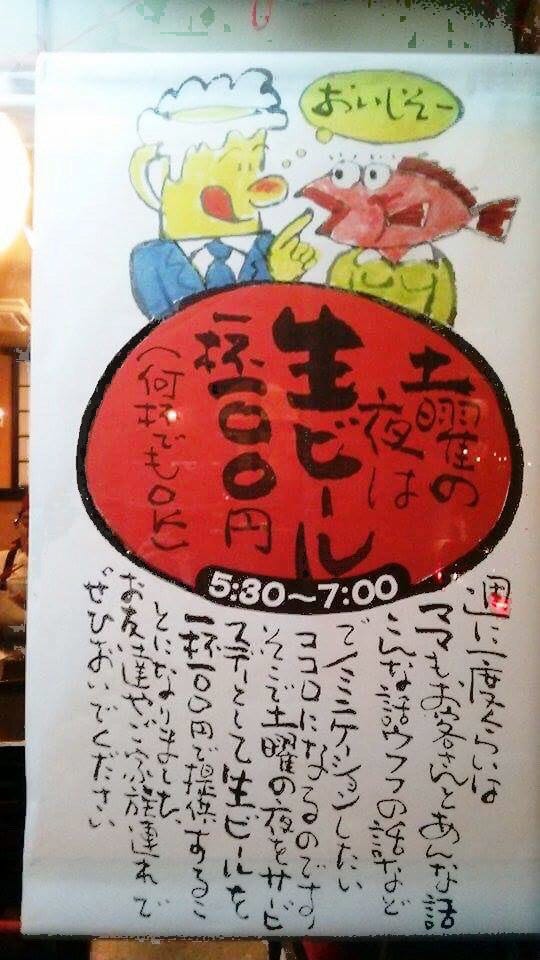 おいしそー
土曜の
夜は
生ビール
一杯一〇〇円
(何杯でもOK)
5:30〜7:00
週に一度くらいは
ママもお客さんとあんな話
こんな話ウフフの話など
でノミニケイションしたい
ココロになるのです。
そこで土曜の夜をサービ
スデーとして生ビールを
一杯一〇〇円で提供するこ
とになりました。
お友達やご家族連れで
ぜひおいでください